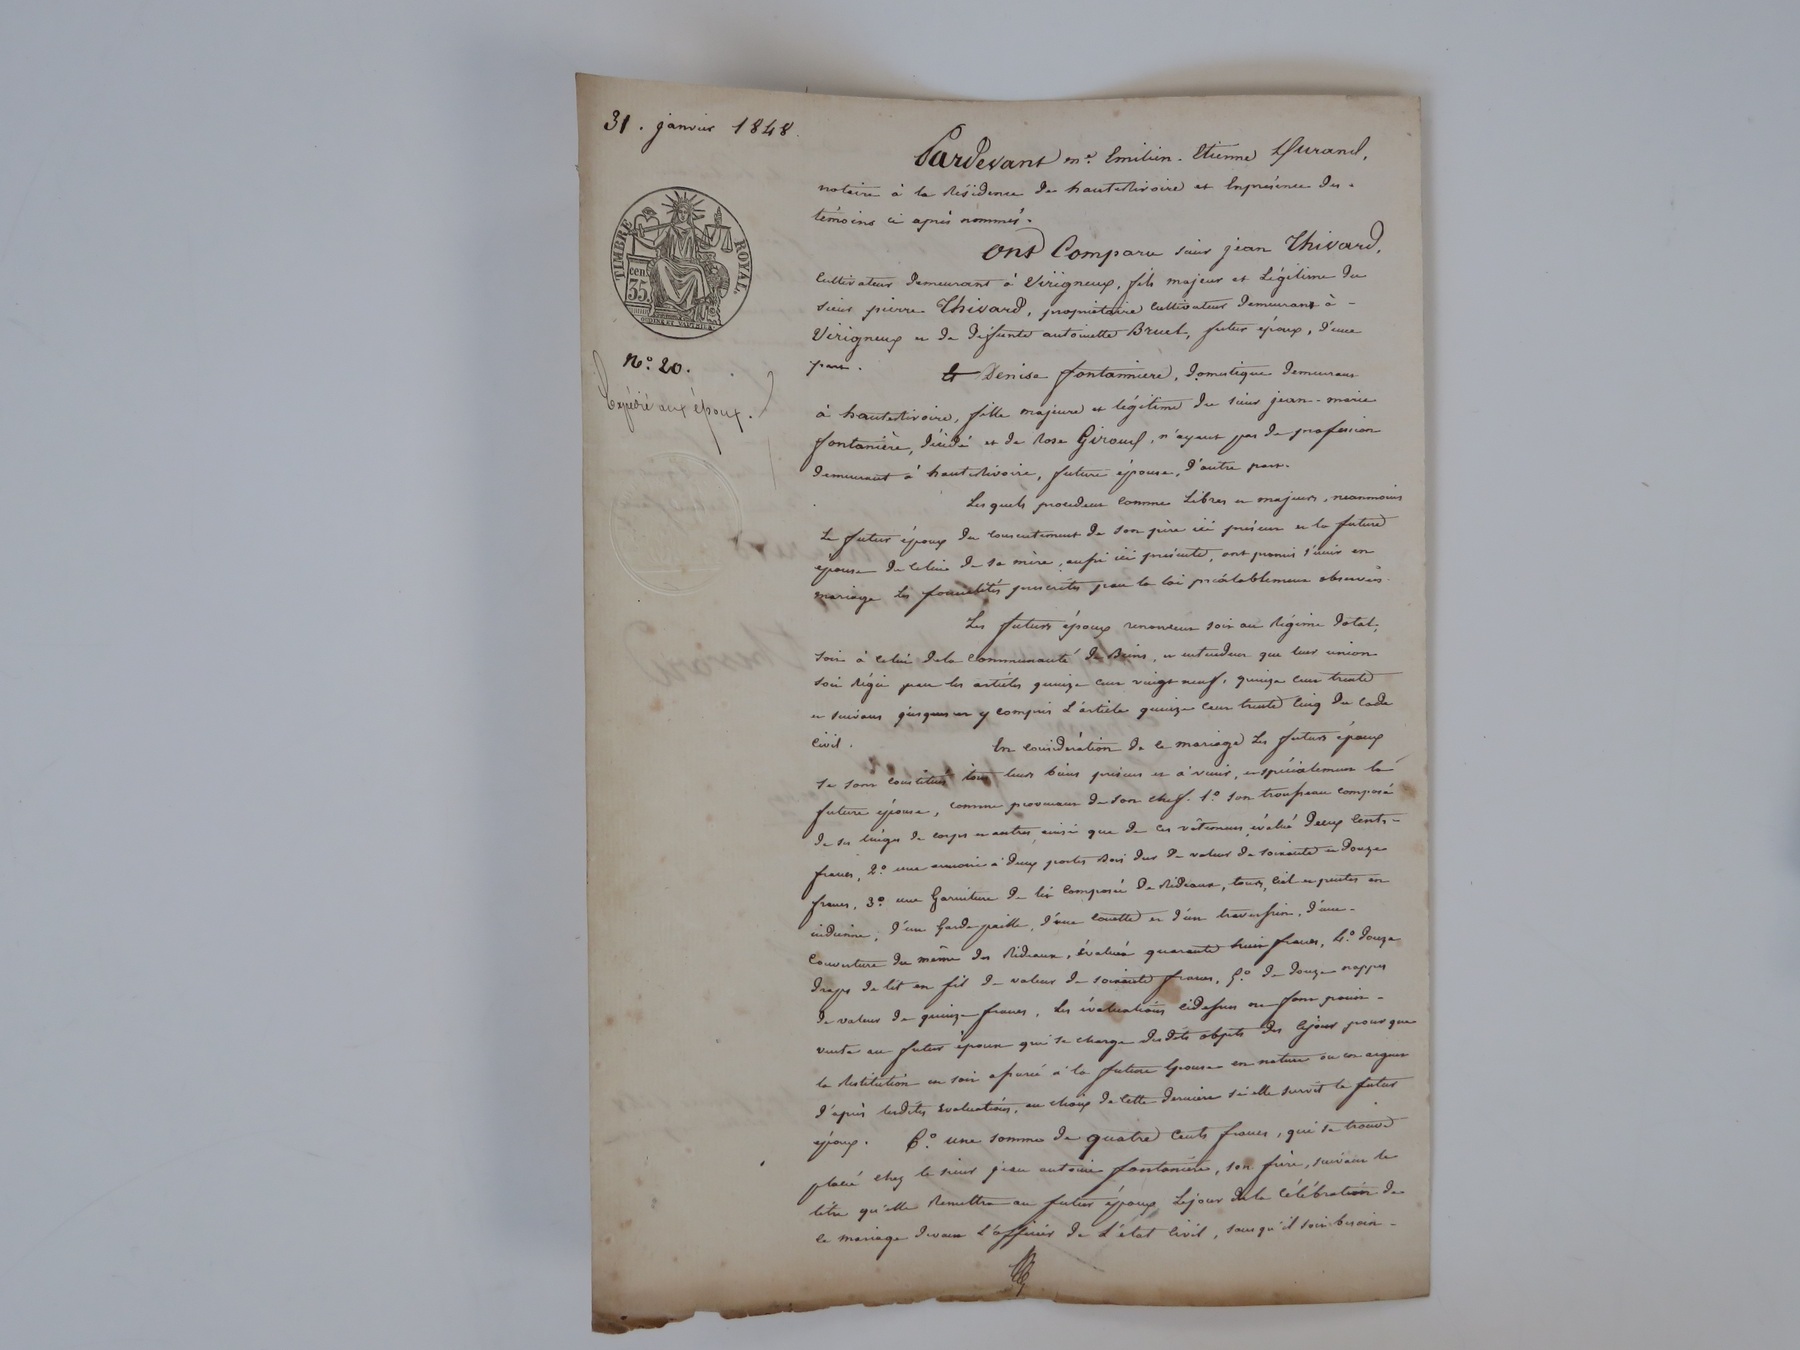 31. janvier 1848.
TIMBRE ROYAL.
cen. 35
N.º 20.
Expédié aux époux.
Pardevant me. Emilien-Etienne Durand,
notaire à la Résidence de hauterivoire et Enprésence des
témoins ci après nommés.
Ont Comparu sieur jean Thivard,
Cultivateur demeurant à Virigneux, fils majeur et Légitime du
sieur pierre Thivard, propriétaire Cultivateur demeurant à
Virigneux et de défunte antoinette Bruel, futur époux, d'une
part.
Et Denise fontannière, domestique demeurant
à hauterivoire, fille majeure et légitime du sieur jean-marie
fontanière, décédé et de Rose Giroud, n'ayant pas de profession
demeurant à hauterivoire, future épouse, d'autre part.
Lesquels procédent comme Libres et majeurs, néanmoins
Le futur époux du consentement de son père ici présent et la future
épouse de celui de sa mère, aussi ici présente, ont promis s'unir en
mariage Les formalités prescrites par la loi préalablement observées.
Les futurs époux renoncent soit au Régime dotal,
soit à Celui dela Communauté de Biens, et entendent que leur union
soit Régie par les articles quinze cent vingt neuf, quinze cent trente
et suivans jusques et y compris L'article quinze cent trente Cinq du Code
Civil.
En considération de ce mariage Les futurs époux
se sont constitués tous leurs biens présens et à venir, et spécialement la
future épouse, comme provenant de son chef. 1.º son trousseau composé
de ses linges de corps et autres ainsi que de ses vêtemens évalué Deux Cents
francs, 2.º une armoire à deux portes Bois dur de valeur de soixante et douze
francs, 3.º une Garniture de lit Composée de Rideaux, tours, Ciel et pentes en
indienne, d'un Garde paille, d'une Couette et d'un traversin, d'une
Couverture du même des Rideaux, évaluée quarante huit francs, 4.º douze
draps de lit en fil de valeur de soixante francs, 5.º de douze nappes
de valeur de quinze francs. Les évaluations cidessus ne font point
vente au futur époux qui se charge desdits objets dès Cejour pour que
la Restitution en soit assurée à la future Epouse en nature ou en argent
d'après lesdites Evaluations, au choix de Cette dernière si elle survit le futur
époux. 6.º une somme de quatre Cents francs, qui se trouve
placée chez le sieur jean antoine fontanière, son frère, suivant le
titre qu'elle Remettra au futur époux Lejour de la Célébration de
ce mariage devant L'officier de L'état Civil, sans qu'il soit besoin